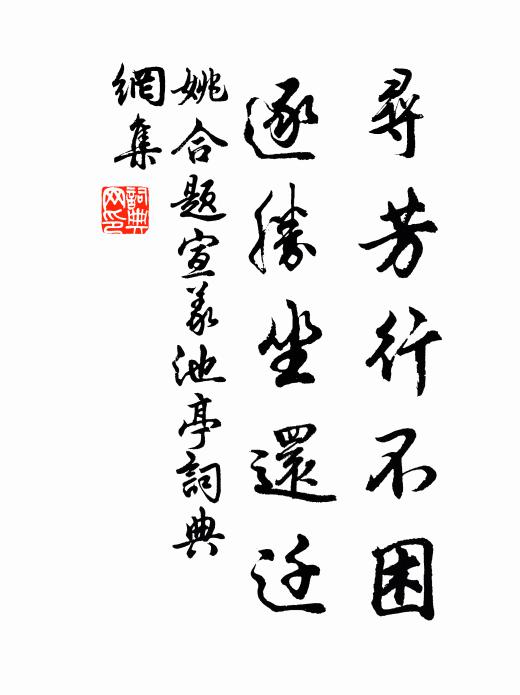 尋芳行不困
逐勝坐還迁
姚合題宣義池亭詞典
網集
詞典網印